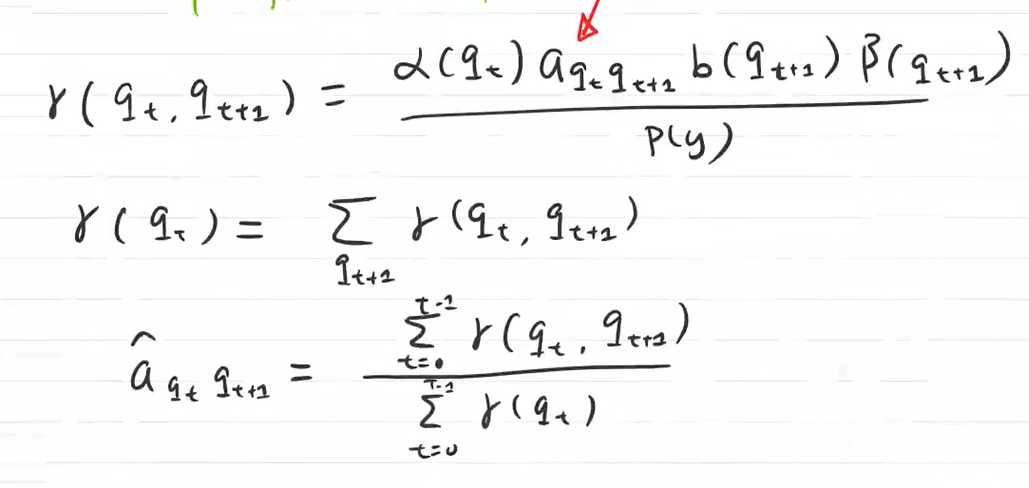 γ(q_t, q_{t+1}) = α(q_t) a_{q_t q_{t+1}} b(q_{t+1}) β(q_{t+1}) / P(y)
γ(q_t) = Σ_{q_{t+1}} γ(q_t, q_{t+1})
â_{q_t q_{t+1}} = Σ_{t=0}^{t-1} γ(q_t, q_{t+1}) / Σ_{t=0}^{T-1} γ(q_t)